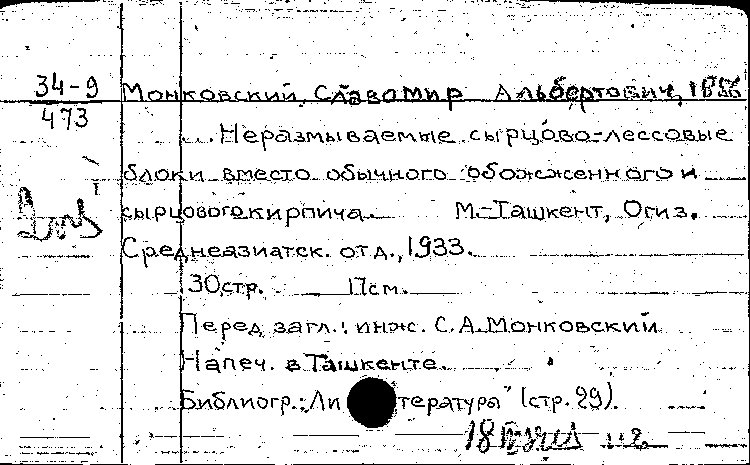 34-9
473
Монковский, Славомир Альбертович, 1886
... Неразмываемые сырцово-лессовые
блоки вместо обычного обожженного и
сырцового кирпича. М.-Ташкент, Огиз.
Среднеазиатск. отд., 1933.
30 стр. 17 см.
Перед загл.: инж. С. А. Монковский
Напеч. в Ташкенте.
Библиогр.: „Литература" (стр. 29).
18